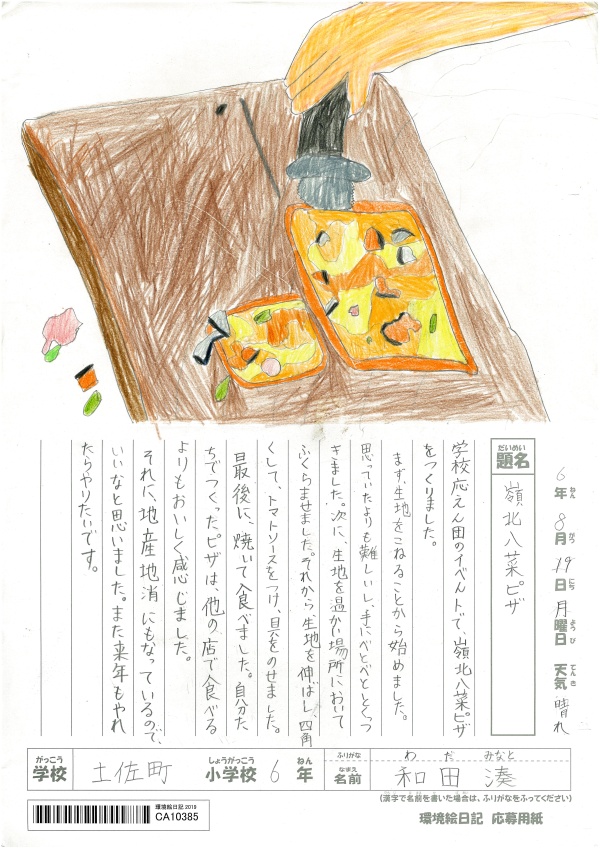 6年8月19日月曜日 天気 晴れ
ねん がつ にち ようび てんき
だいめい
題名
嶺北八菜ピザ
学校応えん団のイベントで、嶺北八菜ピザ
をつくりました。
まず、生地をこねることから始めました。
思っていたよりも難しいし、手にべとべととくっつ
きました。次に、生地を温かい場所において
ふくらませました。それから、生地を伸ばし、四角
くして、トマトソースをつけ、具をのせました。
最後に、焼いて食べました。自分た
ちでつくったピザは、他の店で食べる
よりもおいしく感じました。
それに、地産地消にもなっているので、
いいなと思いました。また来年もやれ
たらやりたいです。
がっこう しょうがっこう ねん ふりがな わだ みなと
学校 土佐町 小学校 6年 なまえ 名前 和田 湊
(漢字で名前を書いた場合は、ふりがなをふってください)
環境絵日記2019
CA10385
環境絵日記 応募用紙